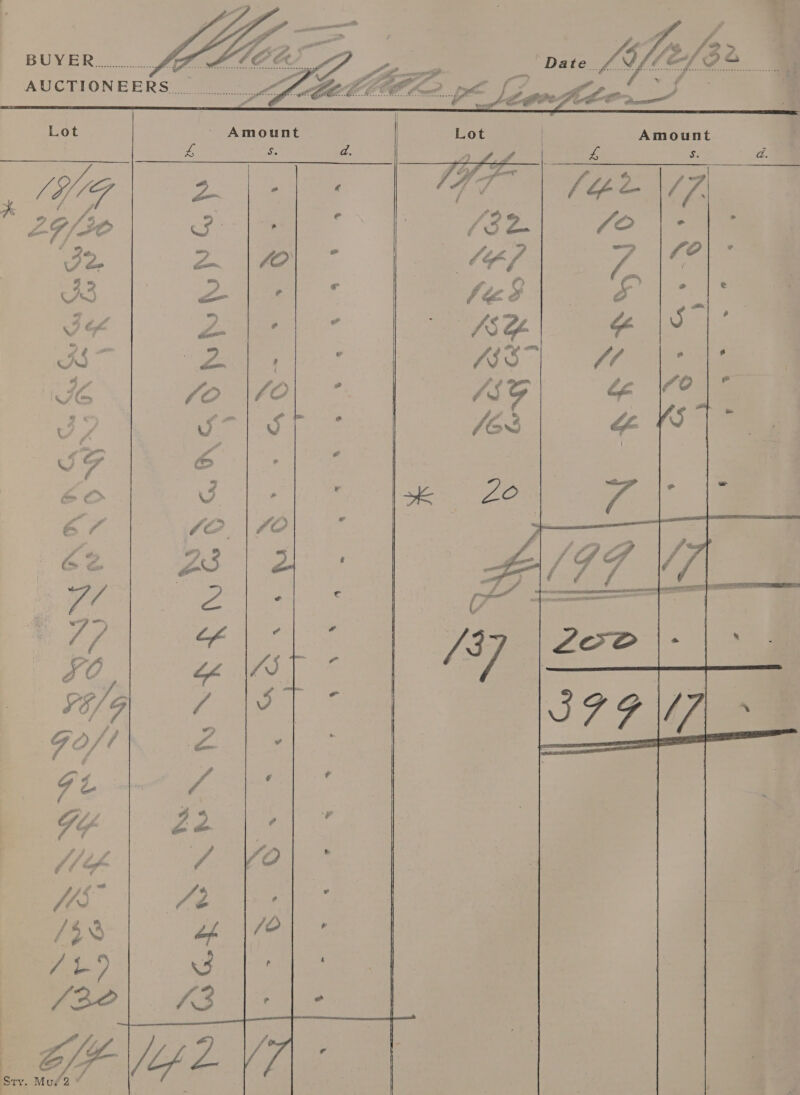 BUYER Date 15/12/32
AUCTIONEERS Puttick & Simpson
Lot Amount Lot Amount
£ s. d. £ s. d.
18/19 2 - - B/F 142 17
* 29/30 3 - - 132 10 - -
32 2 10 - 147 7 10 -
33 2 - - 148 8 - -
34 2 - - 154 4 5 -
35 2 - - 155 11 - -
36 10 10 - 159 4 10 -
37 5 5 - 163 4 15 -
59 6 - -
60 3 - - * 20 7 - -
61 10 10 -
62 23 2 - £199 17
71 2 - -
77 4 - - 137 200 - -
80 4 15 -
88/9 1 5 - 399 17 -
90/1 2 - -
92 1 - -
94 22 - -
114 1 10 -
115 12 - -
123 4 10 -
127 3 - -
130 13 - -
C/F 142 17 -
Sty. Mus 2